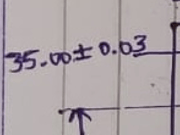 35.00 ± 0.03